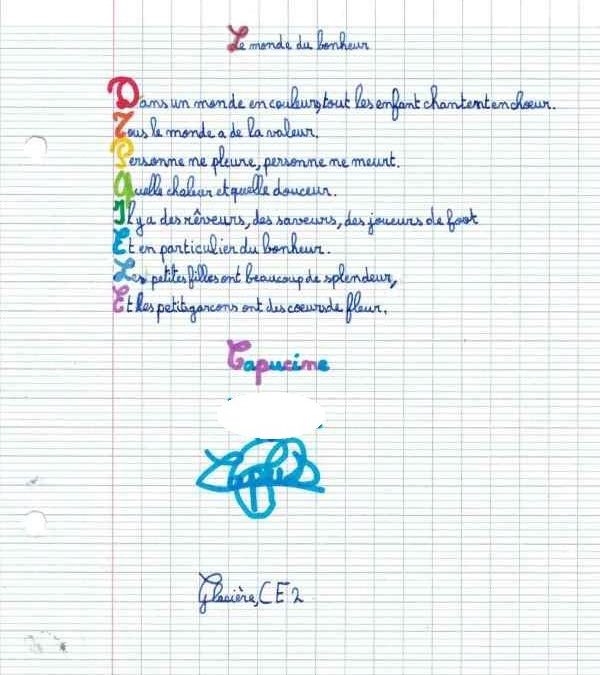 Le monde du bonheur
Dans un monde en couleurs, tout les enfant chantent en choeur.
Tous le monde a de la valeur.
Personne ne pleure, personne ne meurt.
Quelle chaleur et quelle douceur.
Il y a des rêveurs, des sauveurs, des joueurs de foot
Et en particulier du bonheur.
Les petites filles ont beaucoup de splendeur,
Et les petits garcons ont des coeurs de fleur.
Capucine
Glacière, CE2